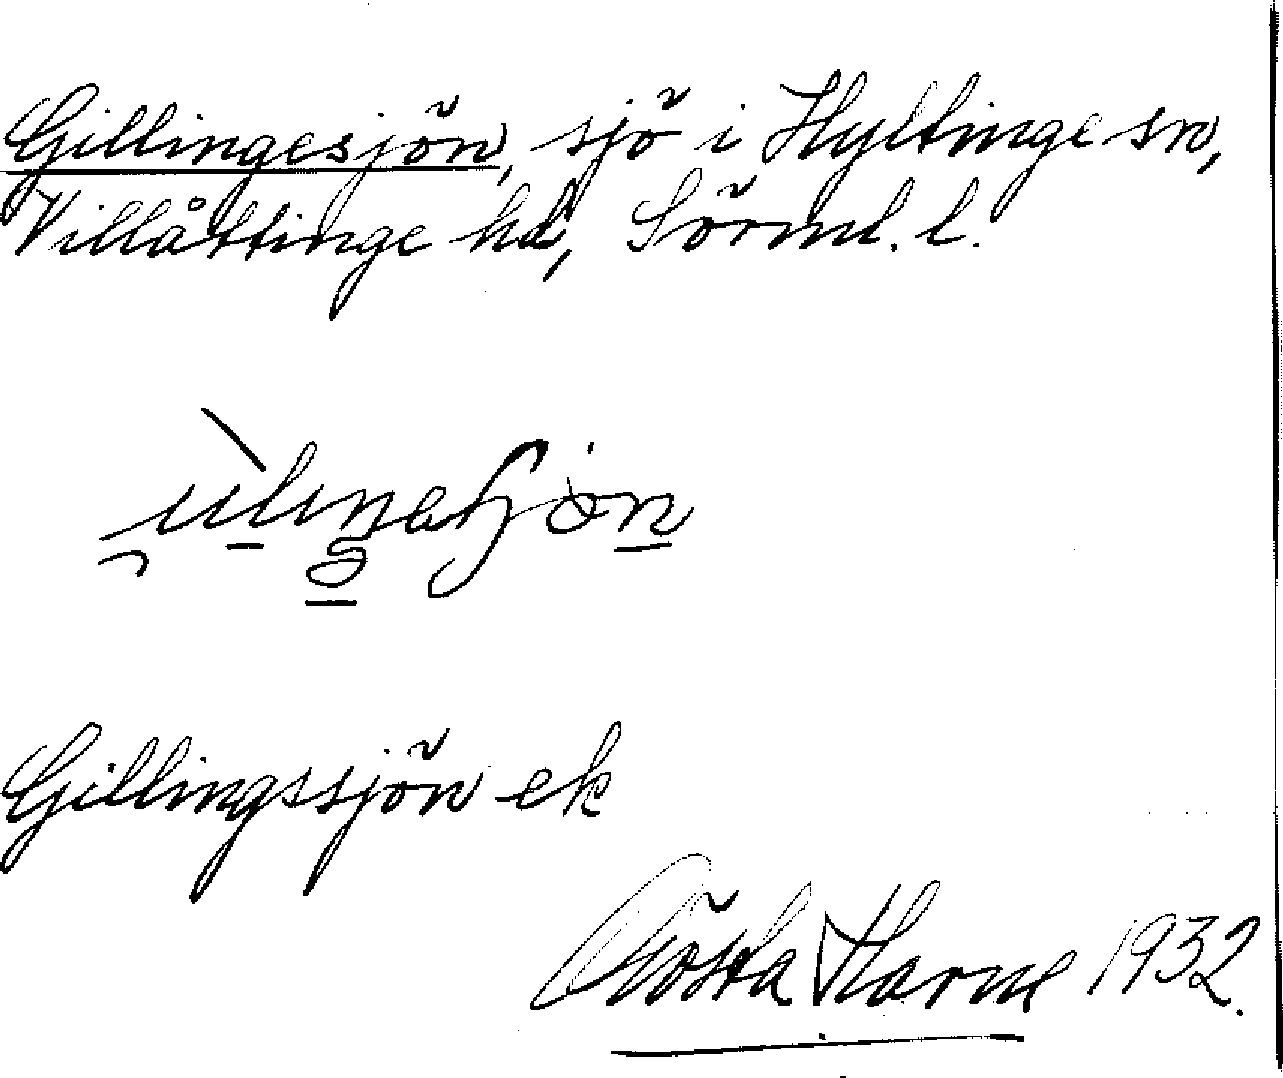 Gillingesjön, sjö i Hyltinge sn,
Villåttinge hd, Sörml. l.
Gillingssjön ek
Gösta Harne 1932.